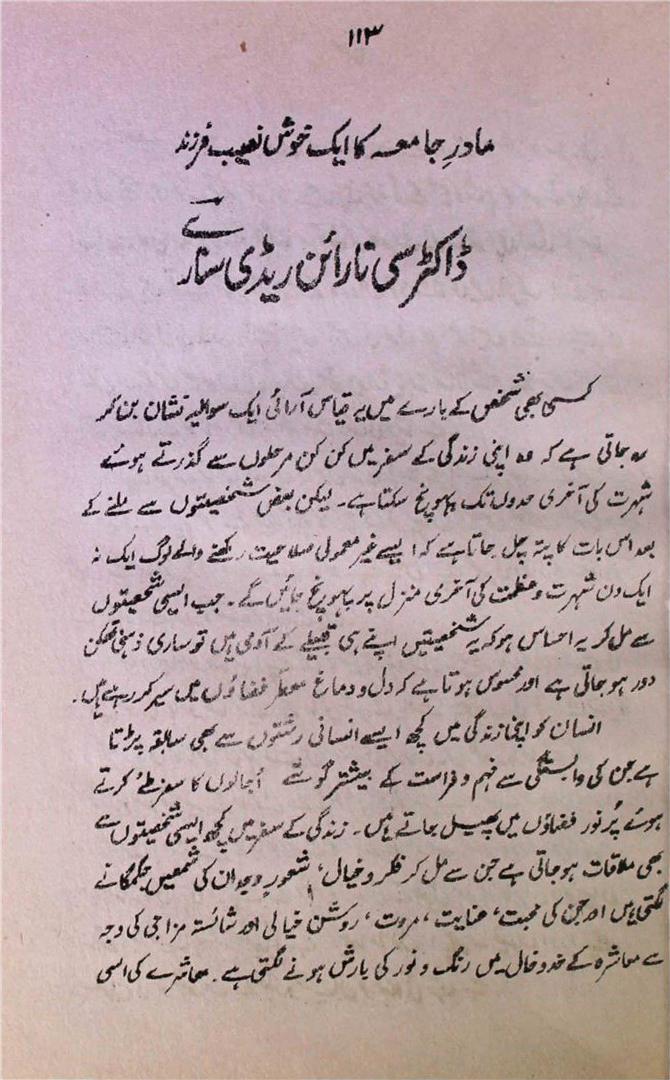 ۱۱۳
مادرِ جامعہ کا ایک خوش نصیب فرزند
ڈاکٹر سی نارائن ریڈی سنارے
کسی بھی شخص کے بارے میں یہ قیاس آرائی ایک سوالیہ نشان بن کر
رہ جاتی ہے کہ وہ اپنی زندگی کے سفر میں کن کن مرحلوں سے گذرتے ہوئے
شہرت کی آخری حدوں تک پہونچ سکتا ہے۔ لیکن بعض شخصیتوں سے ملنے کے
بعد اس بات کا پتہ چل جاتا ہے کہ ایسے غیر معمولی صلاحیت رکھنے والے لوگ ایک نہ
ایک دن شہرت و عظمت کی آخری منزل پر پہونچ جائیں گے۔ جب ایسی شخصیتوں
سے مل کر یہ احساس ہو کہ یہ شخصیتیں اپنے ہی قبیلے کے آدمی ہیں تو ساری ذہنی تھکن
دور ہو جاتی ہے اور محسوس ہوتا ہے کہ دل و دماغ معطر فضاؤں میں سیر کر رہے ہیں۔
انسان کو اپنی زندگی میں کچھ ایسے انسانی رشتوں سے بھی سابقہ پڑتا
ہے جن کی وابستگی سے فہم و فراست کے بیشتر گوشے اُجالوں کا سفر طئے کرتے
ہوئے پُر نور فضاؤں میں پھیل جاتے ہیں۔ زندگی کے سفر میں کچھ ایسی شخصیتوں سے
بھی ملاقات ہو جاتی ہے جن سے مل کر فکر و خیال، شعور و وجدان کی شمعیں جگمگانے
لگتی ہیں اور جن کی محبت، عنایت، مروت، روشن خیالی اور شائستہ مزاجی کی وجہ
سے معاشرہ کے خدوخال میں رنگ و نور کی بارش ہونے لگتی ہے۔ معاشرے کی اسی